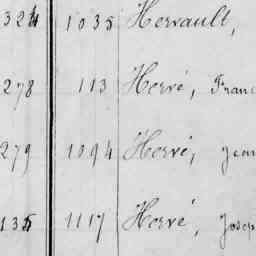 324 1035 Hervault,
278 113 Hervé, Franc
279 1094 Hervé, Jean
135 1117 Hervé, Josep